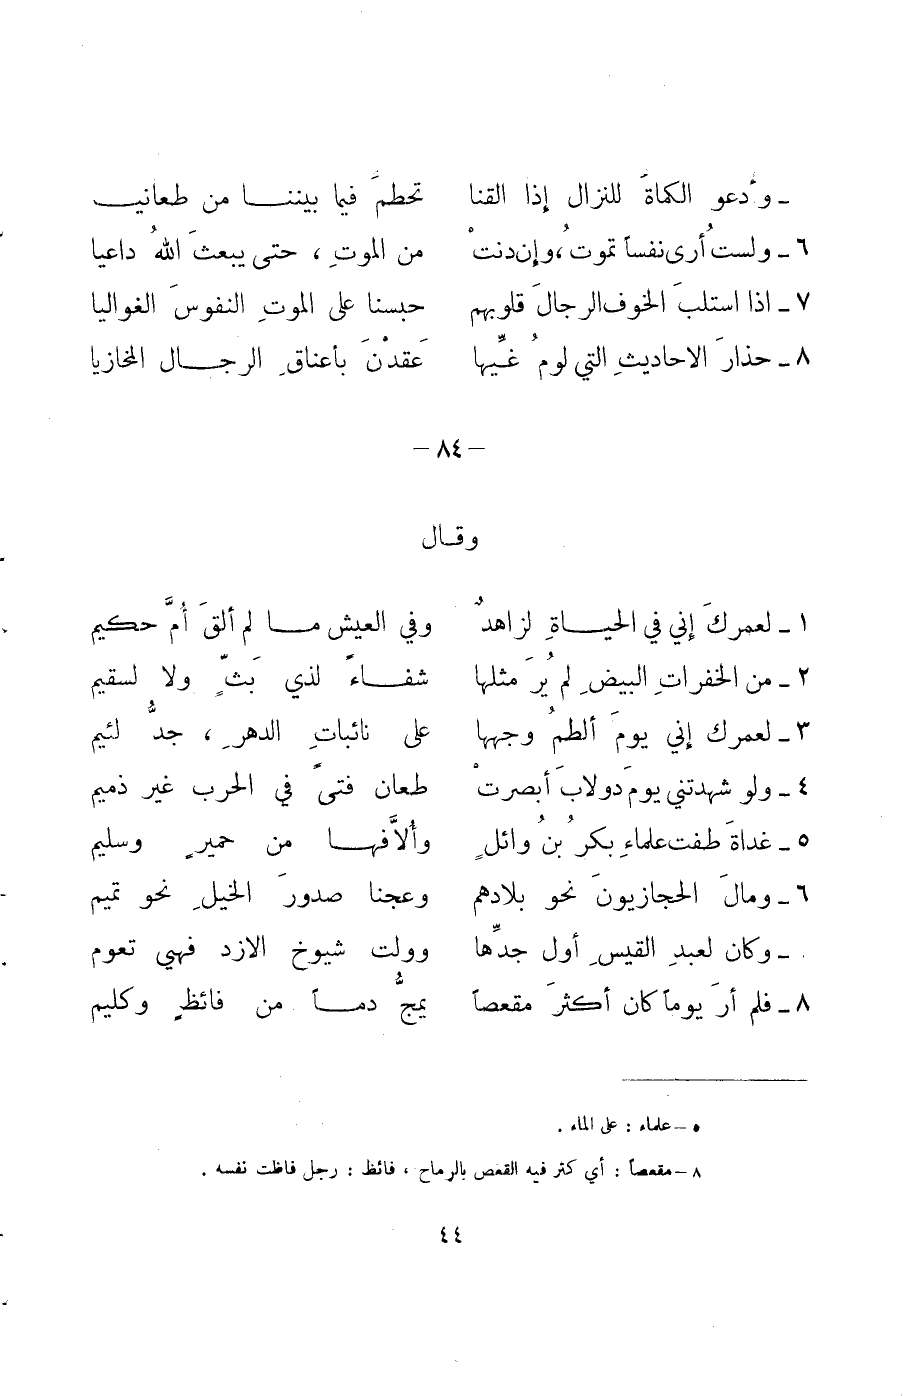 ـ وأدعو الكماةَ للنزال إذا القنا تحطمَّ فيما بيننـــا من طعانيـــ
٦ ـ ولستُ أرى نفساً تموتُ، وإن دنتْ من الموتِ ، حتى يبعثَ اللهُ داعيا
٧ ـ اذا استلبَ الخوفُ الرجالَ قلوبهم حبسنا على الموتِ النفوسَ الغواليا
٨ ـ حذارَ الاحاديثِ التي لومُ غـــيِّها عَقدْنَ بأعناقِ الرجـــال المخازيا
— ٨٤ —
وقـال
١ ـ لعمركَ إني في الحيـــاةِ لزاهدٌ وفي العيش مـــا لم ألقَ أُمَّ حكيم
٢ ـ من الخفراتِ البيضِ لم يُرَ مثلها شفـــاءً لذي بَثّ ولا لسقيم
٣ ـ لعمرك إني يومَ ألطمُ وجهها على نائباتِ الدهرِ ، جدُّ لئيم
٤ ـ ولو شهدتني يومَ دولابَ أبصرتْ طعان فتىً في الحرب غير ذميم
٥ ـ غداةَ طفت علماءِ بكرُ بنُ وائلٍ وأُلاَّفهـــا من حميرٍ وسليم
٦ ـ ومالَ الحجازيونَ نحو بلادهم وعجنا صدورَ الخيلِ نحو تميم
ـ وكان لعبدِ القيسِ أول جدِّها وولت شيوخ الازد فهي تعوم
٨ ـ فلم أرَ يوماً كان أكثرَ مقعصاً يمجُّ دمـــاً من فائظٍ وكليم
٥ – علماء : على الماء .
٨ – مقعصاً : أي كثر فيه القعص بالرماح ، فائظ : رجل فاظت نفسه .
٤٤